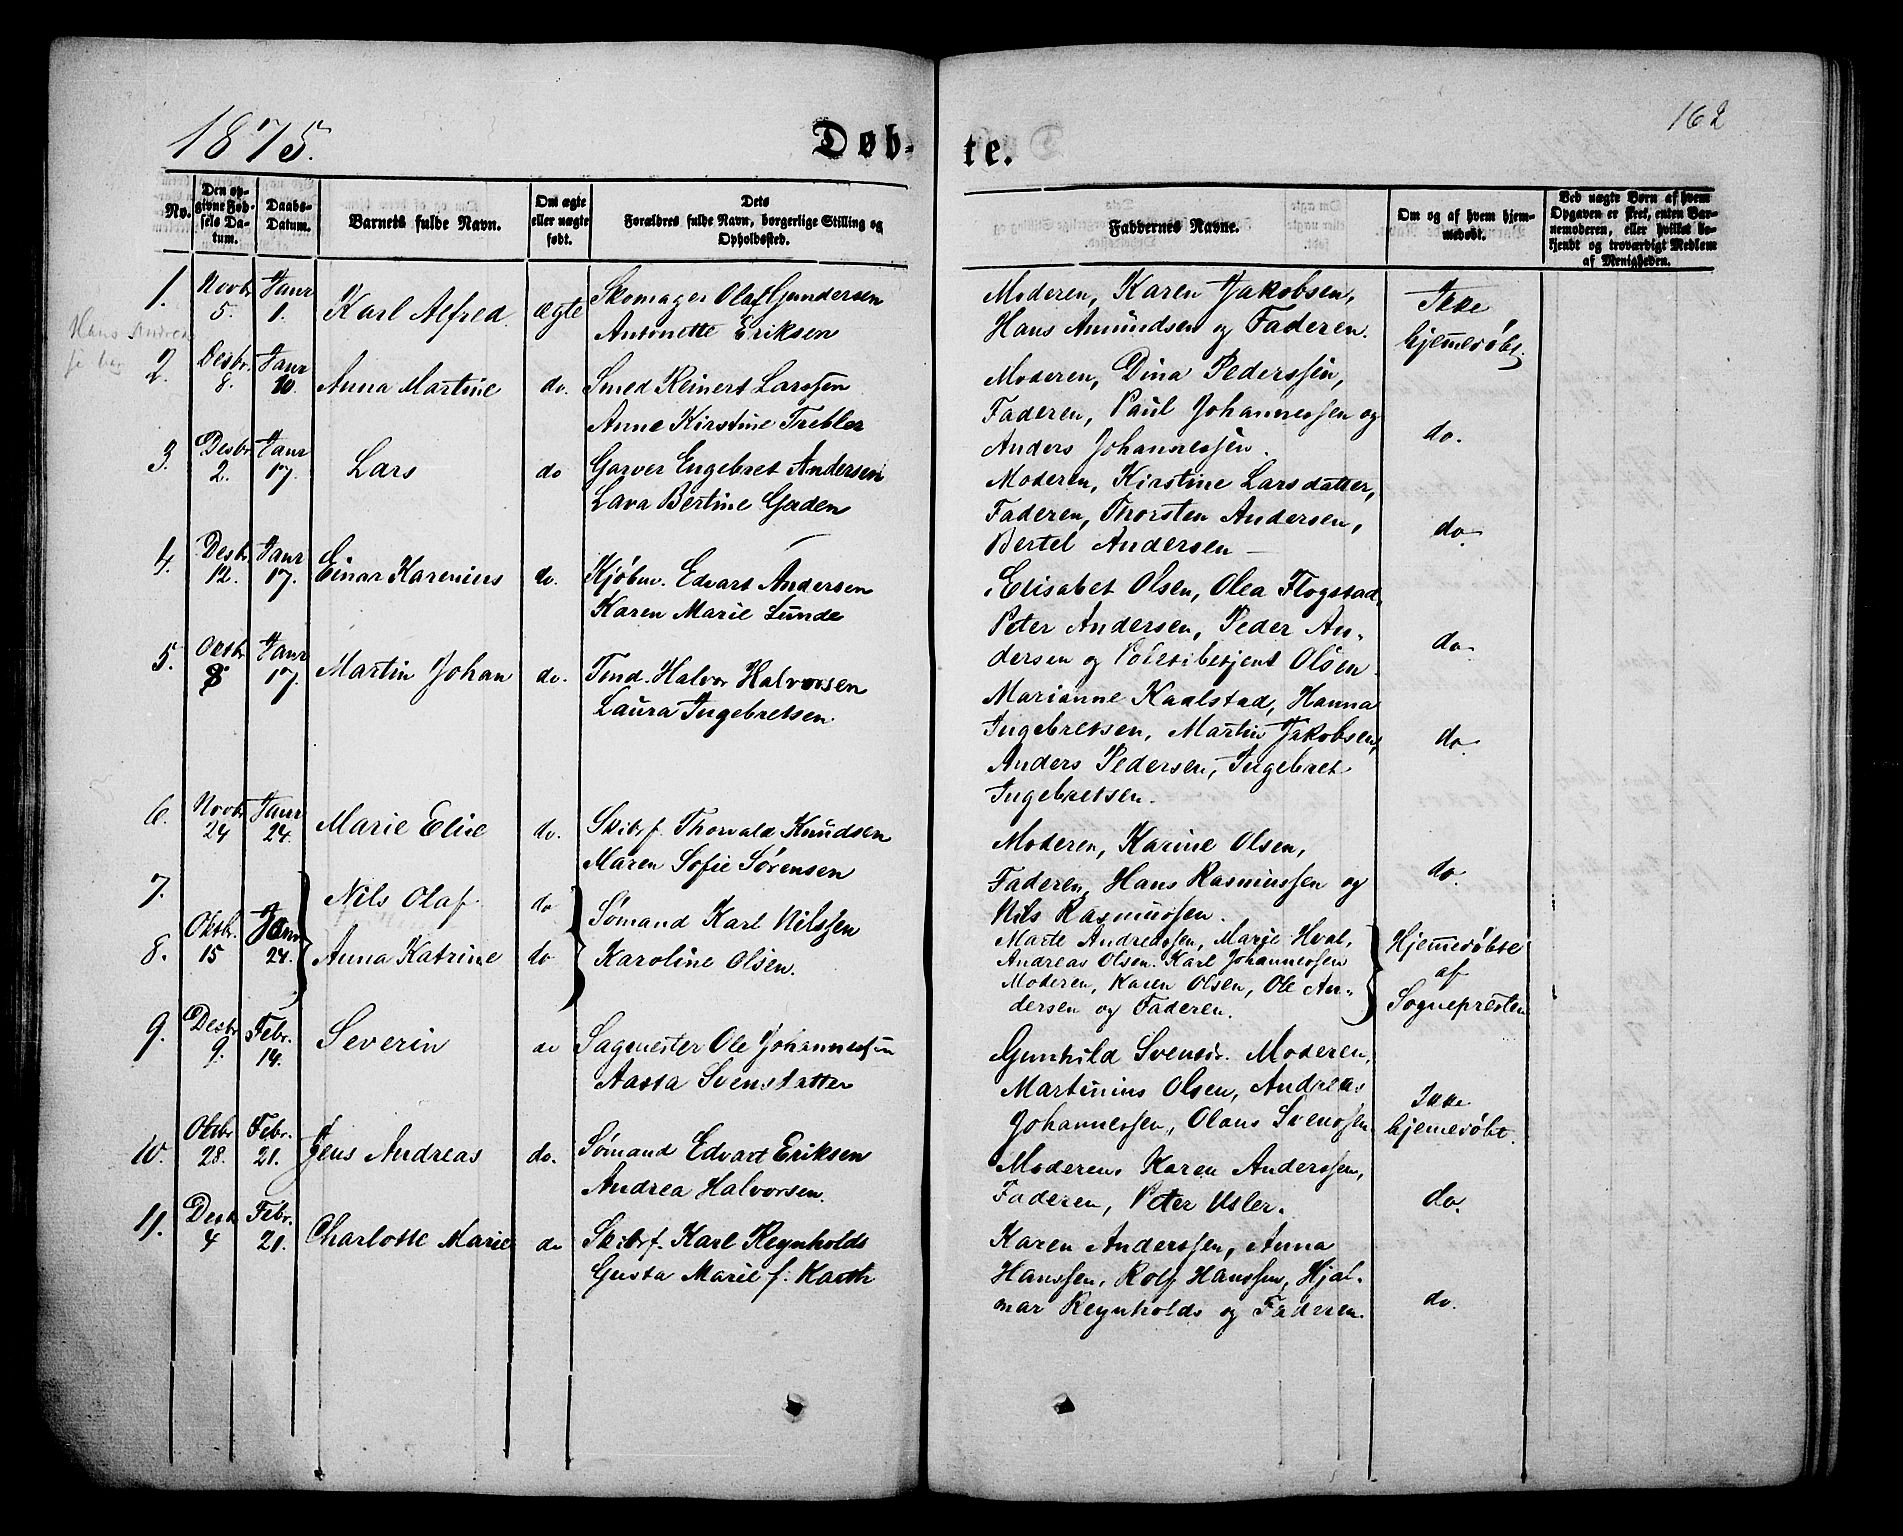 1875.
Døb-
te.
162
No.
Den op-
givne Fød-
sels Da-
tum.
Daabs-
Datum.
Barnets fulde Navn.
Om ægte
eller uægte
født.
Dets
Forældres fulde Navn, borgerlige Stilling og
Opholdssted.
Faddernes Navne.
Om og af hvem hjem-
medøbt.
Ved uægte Børn af hvem
Opgaven er skeet, enten Bar-
nemoderen, eller hvilket be-
kjendt og troværdigt Medlem
af Menigheden.
1.
Novbr
5.
Janr
1.
Karl Alfred.
ægte
Skomager Olaf Gundersen
Antonette Eriksen
Moderen, Karen Jakobsen,
Hans Amundsen og Faderen.
Ikke
hjemedøbt.
Hans Andrea
2.
Desbr.
8.
Janr
10.
Anna Martine
do.
Smed Reinert Larssen
Anne Kirstine Trebler
Moderen, Dina Pederssen,
Faderen, Paul Johannessen og
Anders Johannessen.
do.
3.
Desbr
2.
Janr
17.
Lars
do
Garver Engebret Andersen
Lava Bertine Gaden
Moderen, Kirstine Larsdatter,
Faderen, Thorsten Andersen,
Bertel Andersen —
do.
4.
Desbr
12.
Janr
17.
Einar Karenius
do.
Kjøbm. Edvart Andersen
Karen Marie Lunde
Elisabet Olsen, Olea Flogstad,
Peter Andersen, Peder An-
dersen og Politibetjent Olsen
do.
5.
Oktbr
8
Janr
17.
Martin Johan
do.
Tmd. Halvor Halvorsen
Laura Ingebretsen.
Marianne Kaalstad, Hanna
Ingebretsen, Martin Jakobsen,
Anders Pedersen, Ingebret
Ingebretsen.
do.
6.
Novbr
24
Janr
24.
Marie Elise
do.
Skibsf. Thorvald Knudsen
Maren Sofie Sørensen
Moderen, Karine Olsen,
Faderen, Hans Rasmussen og
Nils Rasmussen.
do.
7.
Nils Olaf
do
8.
Oktbr.
15
Janr
24.
Anna Katrine
do
Sømand Karl Nilssen
Karoline Olsen.
Marte Andreassen, Marje Hval,
Andreas Olsen. Karl Johannessen
Moderen, Karen Olsen, Ole An-
dersen og Faderen.
Hjemedøbte
af
Sognepresten
9.
Desbr
9.
Febr.
14.
Severin
do
Sagmester Ole Johannessen
Aasta Svensdatter
Gunhild Svensdr. Moderen,
Martinius Olsen, Andreas
Johannessen, Olaus Svenssen
Ikke
hjemedøbt.
10.
Oktbr
28.
Febr.
21.
Jens Andreas
do.
Sømand Edvart Eriksen
Andrea Halvorsen.
Moderen, Karen Anderssen,
Faderen, Peter Usler.
do.
11.
Desbr
4
Febr.
21.
Charlotte Marie
do
Skibsf. Karl Reynholds
Gusta Marie f. Karth
Karen Anderssen, Anna
Hanssen, Rolf Hanssen, Hjal-
mar Reynholds og Faderen.
do.